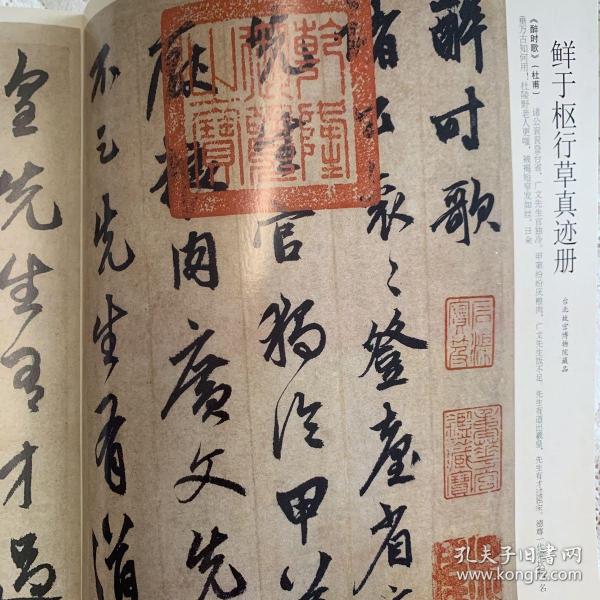 鲜于枢行草真迹册
台北故宫博物院藏品
《醉时歌》（杜甫）
诸公衮衮登台省，广文先生官独冷。甲第纷纷厌粱肉，广文先生饭不足。先生有道出羲皇，先生有才过屈宋。德尊一代
名垂万古知何用！杜陵野老人更嗤，被褐短窄鬓如丝。日籴
醉时歌
诸公衮衮登台省
先生官独冷甲第
厌粱肉广文先
不足先生有道
皇先生有才过
乾隆御览之宝
石渠宝笈
重华宫鉴藏宝
孔夫子旧书网
www.kongfz.com